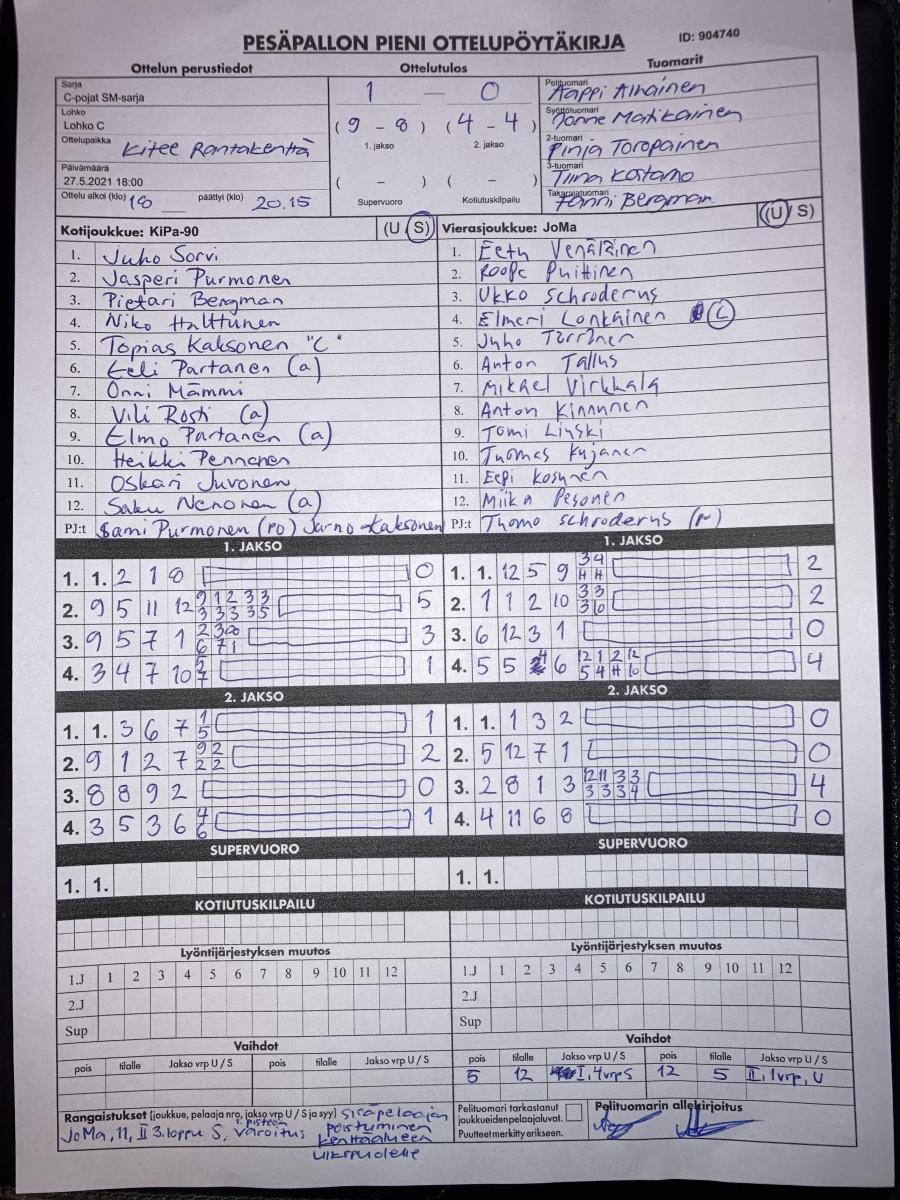 PESÄPALLON PIENI OTTELUPÖYTÄKIRJA
ID: 904740
Ottelun perustiedot
Ottelutulos
Tuomarit
Sarja
C-pojat SM-sarja
Lohko
Lohko C
Ottelupaikka Kitee Rantakenttä
Päivämäärä
27.5.2021 18:00
Ottelu alkoi (klo) 18 päättyi (klo) 20.15
1 — 0
(9 - 8) (4 - 4)
1. jakso 2. jakso
( - ) ( - )
Supervuoro Kotiutuskilpailu
Pelituomari
Aappi Alhainen
Syöttötuomari
Jonne Matikainen
2-tuomari
Pinja Toropainen
3-tuomari
Tiina Kostamo
Takarajatuomari
Fanni Bergman
Kotijoukkue: KiPa-90 (U S)
1. Juho Sorvi
2. Jasperi Purmonen
3. Pietari Bergman
4. Niko Halttunen
5. Topias Kaksonen "C"
6. Eeli Partanen (a)
7. Onni Mämmi
8. Vili Rosti (a)
9. Elmo Partanen (a)
10. Heikki Pennanen
11. Oskari Juvonen
12. Saku Nenonen (a)
PJ:t Sami Purmonen (PO) Jarno Kaksonen
Vierasjoukkue: JoMa (U/ S)
1. Eetu Venäläinen
2. Roope Puittinen
3. Ukko Schroderus
4. Elmeri Lonkainen C
5. Juho Torninen
6. Anton Tallus
7. Mikael Virkkala
8. Anton Kinnunen
9. Tomi Linski
10. Tuomas Kujanen
11. Eepi Kosunen
12. Miika Pesonen
PJ:t Tuomo Schroderus
1. JAKSO
1. 1. 2 1 8 0
2. 9 5 11 12 9 1 2 3 3 5
3 3 3 3 5
3. 9 5 7 1 2 3 8 3
6 7 1
4. 3 4 7 10 1
1. JAKSO
1. 1. 12 5 9 3 4 2
H H
2. 1 1 2 10 3 3 2
3 10
3. 6 12 3 1 0
4. 5 5 4 6 12 1 2 12 4
5 4 H 10
2. JAKSO
1. 1. 3 6 7 1 1
5
2. 9 1 2 7 9 2 2
2 2
3. 8 8 9 2 0
4. 3 5 3 6 4 1
6
2. JAKSO
1. 1. 1 3 2 0
2. 5 12 7 1 0
3. 2 8 1 3 12 11 3 3 4
3 3 3 4
4. 4 11 6 8 0
SUPERVUORO
1. 1.
SUPERVUORO
1. 1.
KOTIUTUSKILPAILU
KOTIUTUSKILPAILU
Lyöntijärjestyksen muutos
1.J 1 2 3 4 5 6 7 8 9 10 11 12
2.J
Sup
Lyöntijärjestyksen muutos
1.J 1 2 3 4 5 6 7 8 9 10 11 12
2.J
Sup
Vaihdot
pois tilalle Jakso vrp U / S pois tilalle Jakso vrp U / S
Vaihdot
pois tilalle Jakso vrp U / S pois tilalle Jakso vrp U / S
5 12 I, 4vrp S 12 5 II, 1vrp, U
Rangaistukset (joukkue, pelaaja nro, jakso vrp U / S ja syy) Sisäpelaajan
JoMa, 11, II 3.loppu S, 1. pisteen varoitus poistuminen
kenttäalueen
ulkopuolelle
Pelituomari tarkastanut
joukkueidenpelaajaluvat.
Puutteet merkitty erikseen.
Pelituomarin allekirjoitus